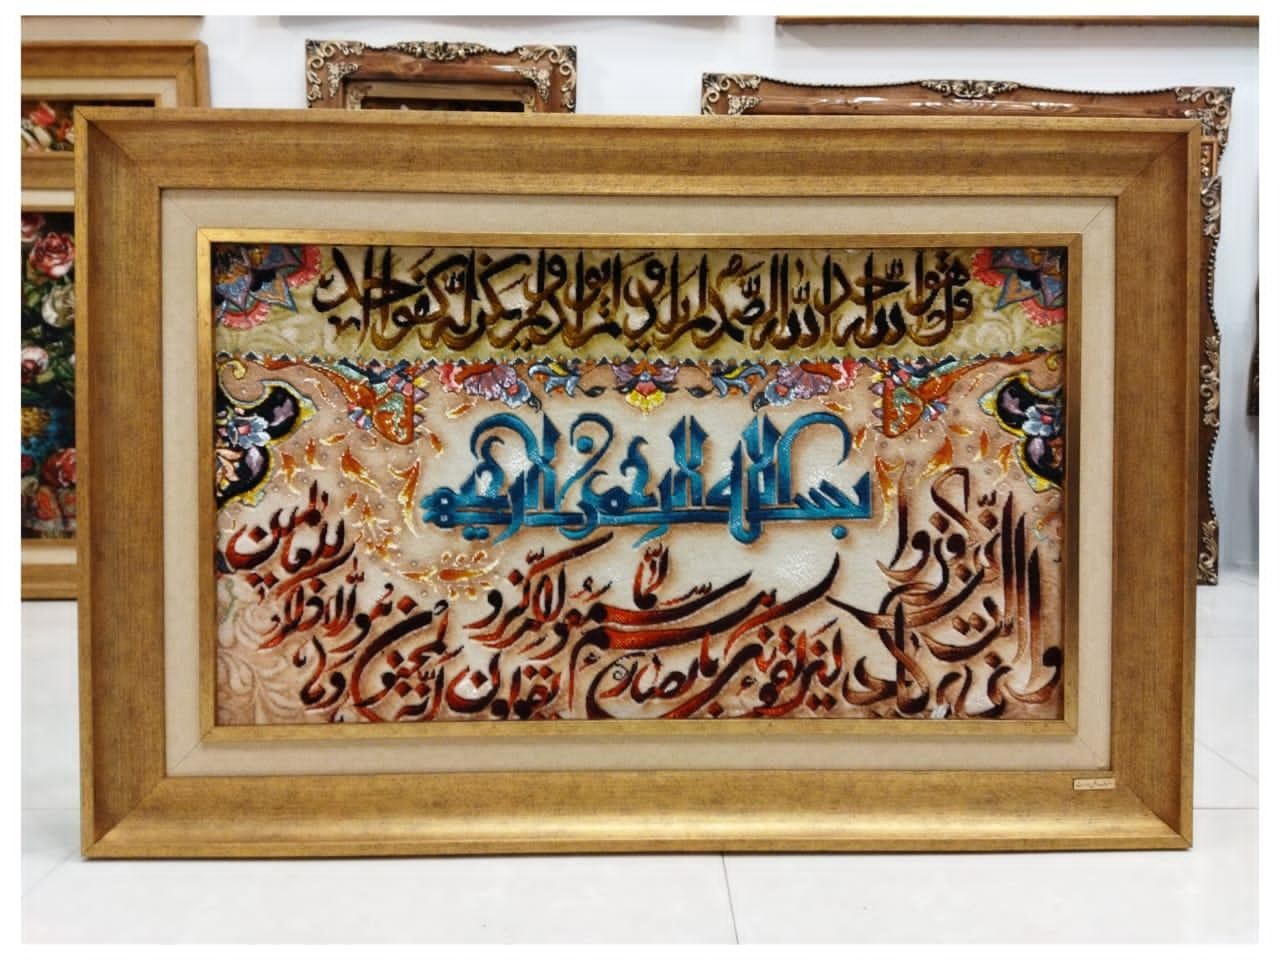 قل هو الله احد الله الصمد لم يلد ولم يولد ولم يكن له كفوا احد
بسم الله الرحمن الرحيم
وان يكاد الذين كفروا ليزلقونك بابصارهم لما سمعوا الذكر و
يقولون انه لمجنون وما هو الا ذكر للعالمين